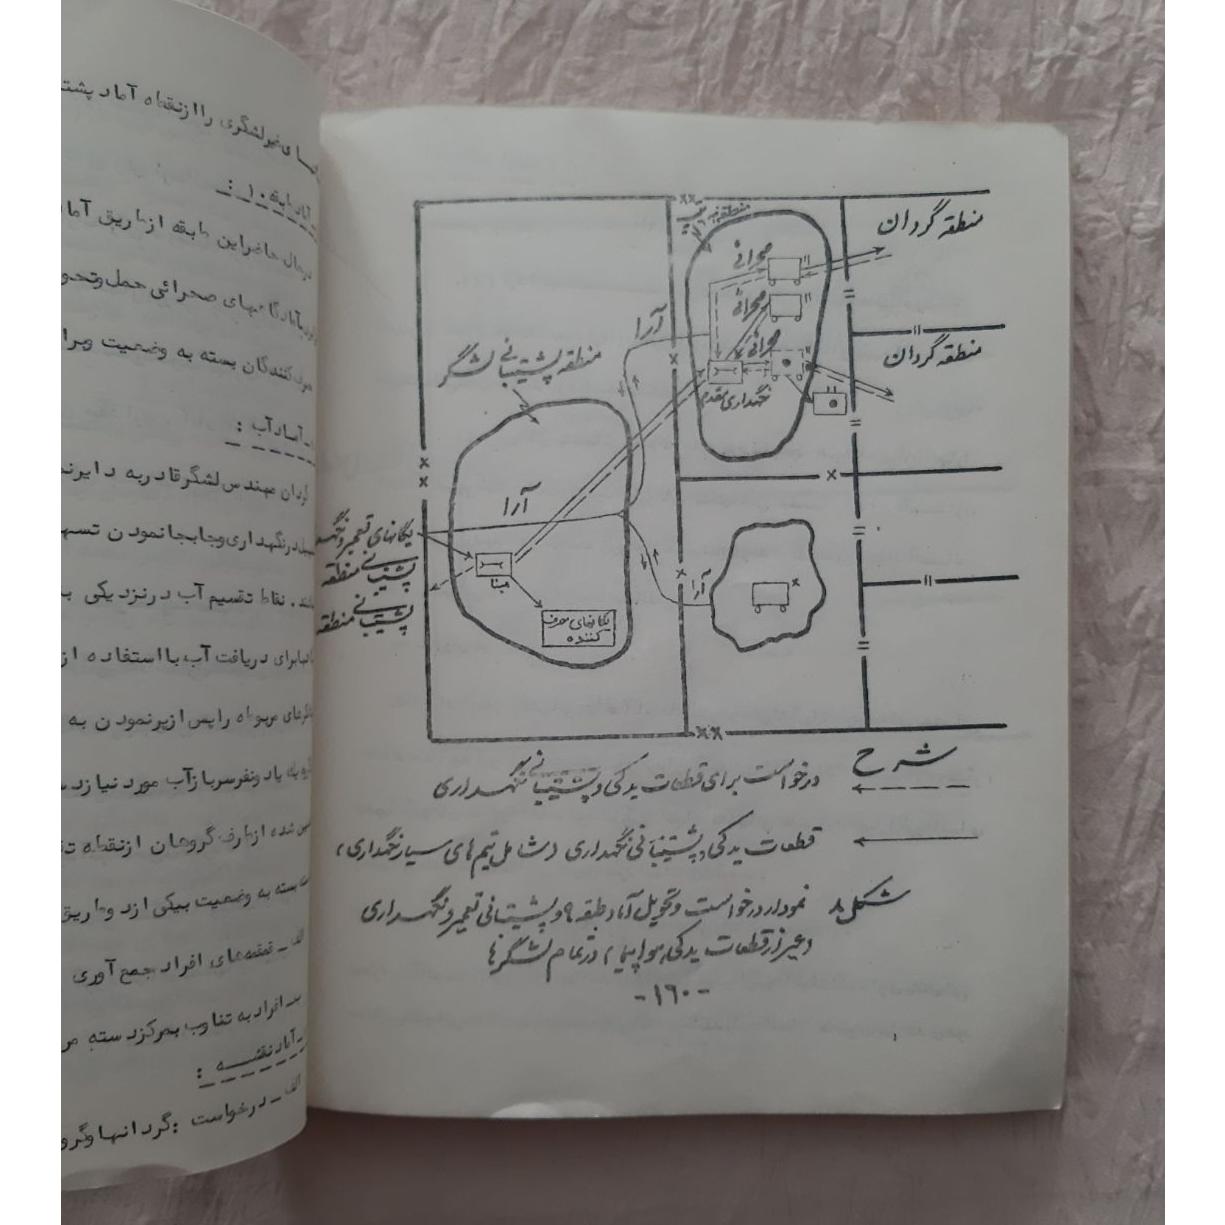 منطقه گردان
صحرائی
صحرائی
آرا
منطقه گردان
صحرائی
منطقه پشتیبانی لشگر
نگهداری مقدم
آرا
یگانهای تعمیر و
پشتیبانی منطقه
مبنا
آرا
پشتیبانی منطقه
یگانهای مصرف
کننده
شرح
درخواست برای قطعات یدکی و پشتیبانی نگهداری
قطعات یدکی و پشتیبانی نگهداری (شامل تیم های سیار نگهداری)
شکل ۸ نمودار درخواست و تحویل آماد طبقه ۹ و پشتیبانی تعمیر و نگهداری
(غیر از قطعات یدکی هواپیما) در تمام لشگرها
-۱۶۰-
ی غیرلشگری را از نقطه آماد پشت
آماد طبقه ۱۰ :
درحال حاضر این طبقه از طریق آما
صحرائی حمل و تحو
کنندگان بسته به وضعیت وبرا
آماد آب :
گردان مهندس لشگر قادر به دایر
در نگهداری و جابجا نمودن تسه
نقاط تقسیم آب در نزدیکی
برای دریافت آب با استفاده از
مربوطه را پس از پر نمودن به
یا دو نفر سرباز آب مورد نیاز
شده از طرف گروهان از نقطه
بسته به وضعیت بیکی از دو طریق
الف ـ قمقمه های افراد جمع آوری
ب ـ افراد به تناوب بمرکز دسته
آماد نقشه :
الف ـ درخواست : گردانها و گرو